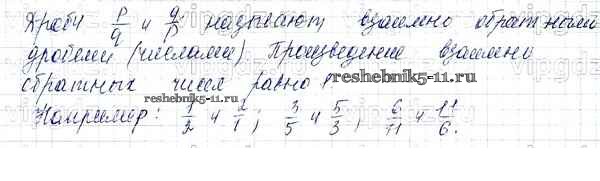 Дроби p/q и q/p называют взаимно обратными
дробями (числами) Произведение взаимно
обратных чисел равно 1
reshebnik5-11.ru
reshebnik5-11.ru
Например: 1/2 и 2/1; 3/5 и 5/3; 6/11 и 11/6.